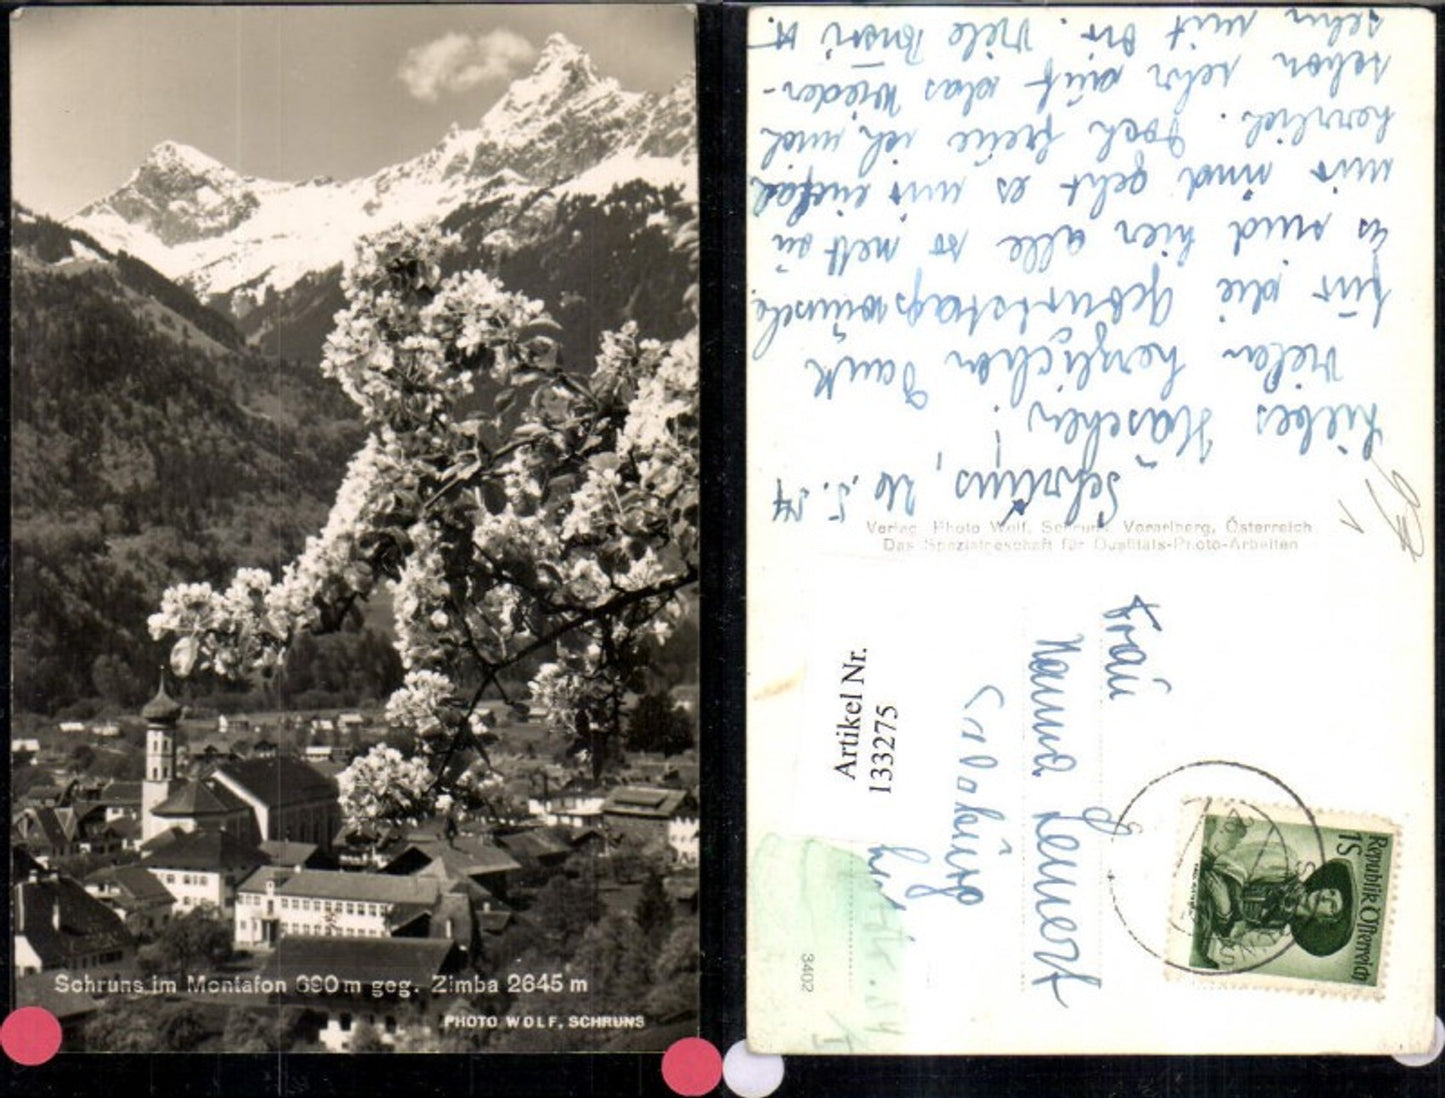 Schruns im Montafon 690 m geg. Zimba 2645 m
PHOTO WOLF, SCHRUNS
Schruns, 26.5.54
Liebes Häschen!
Vielen herzlichen Dank
für die Geburtstagswünsche
Es sind hier alle so nett zu
mir und geht es mir einfach
herrlich. Doch freue ich mich
schon sehr auf das Wieder-
sehn mit Dir. Viele
Verlag Photo Wolf, Schruns, Vorarlberg, Österreich
Das Spezialgeschäft für Qualitäts-Photo-Arbeiten
Frau
Hanna
Salzburg
Artikel Nr.
133275
3402
Republik Österreich
1S